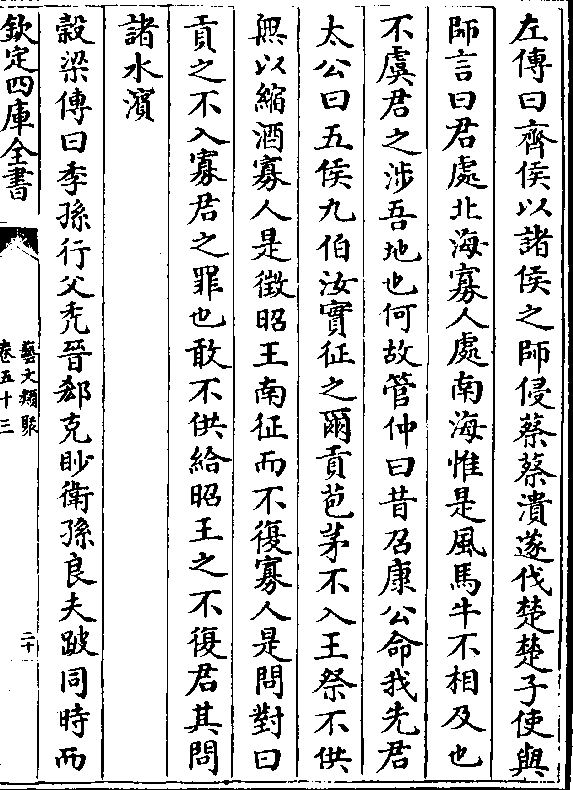 左傳曰齊侯以諸侯之師侵蔡蔡潰遂伐楚楚子使與
師言曰君處北海寡人處南海惟是風馬牛不相及也
不虞君之涉吾地也何故管仲曰昔召康公命我先君
太公曰五侯九伯汝實征之爾貢苞茅不入王祭不供
無以縮酒寡人是徵昭王南征而不復寡人是問對曰
貢之不入寡君之罪也敢不供給昭王之不復君其問
諸水濱
穀梁傳曰季孫行父禿晉郤克眇衛孫良夫跛同時而
欽定四庫全書
藝文類聚
卷五十三
二十